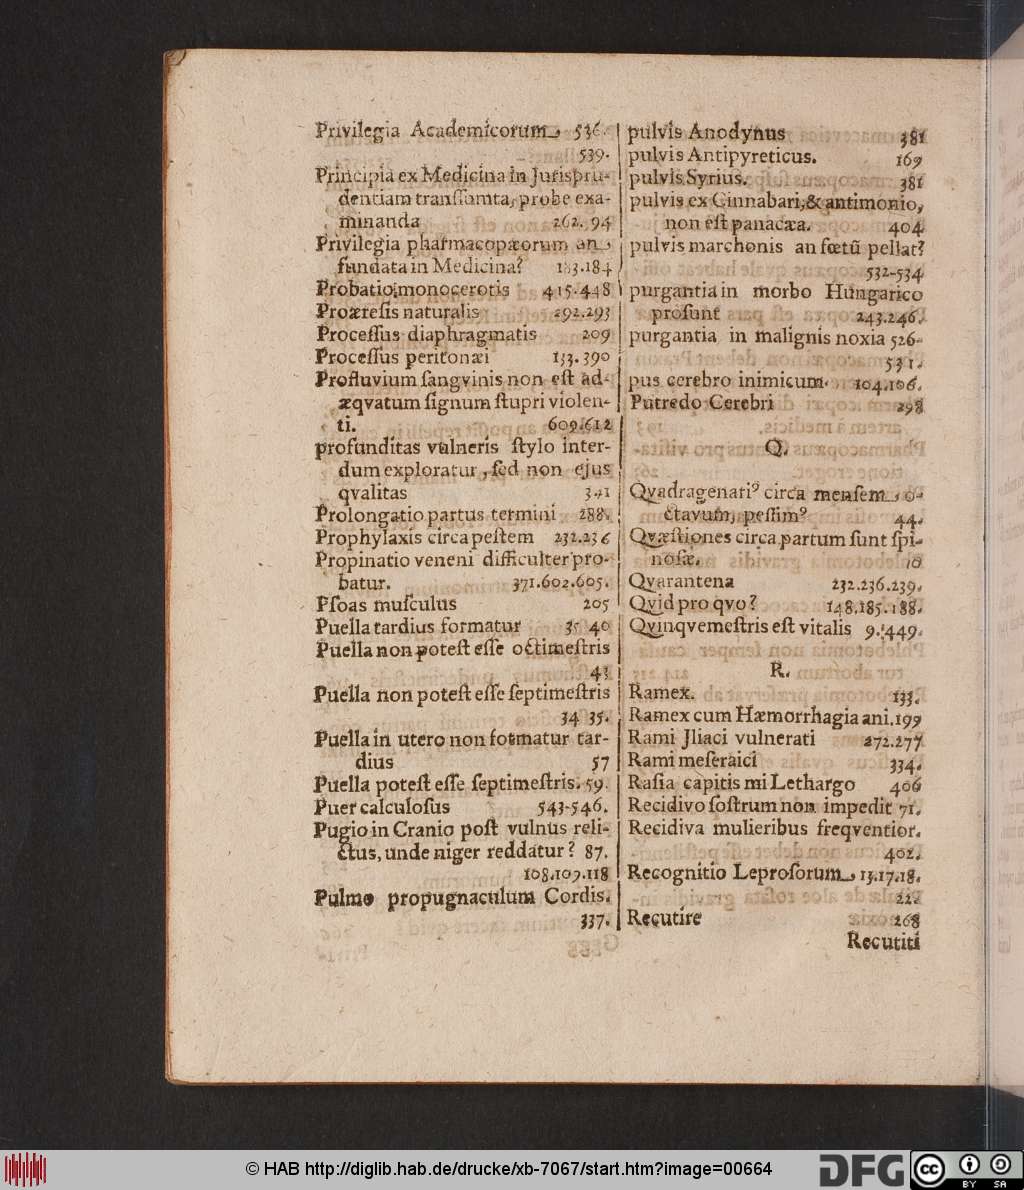 Privilegia Academicorum 536.
539.
Principia ex Medicina in Jurispru-
dentiam transſumta, probe exa-
minanda 262. 94
Privilegia pharmacopæorum an
fundata in Medicina? 183.184
Probatio monocerotis 415.448
Proæreſis naturalis 292.293
Proceſſus diaphragmatis 209
Proceſſus peritonæi 133.390
Profluvium ſangvinis non eſt ad-
æqvatum ſignum ſtupri violen-
ti. 609.612
profunditas vulneris ſtylo inter-
dum exploratur, ſed non ejus
qvalitas 341
Prolongatio partus termini 288.
Prophylaxis circa peſtem 232.236
Propinatio veneni difficulter pro-
batur. 371.602.605.
Pſoas muſculus 205
Puella tardius formatur 35 40
Puella non poteſt eſſe octimeſtris
43
Puella non poteſt eſſe ſeptimeſtris
34 35.
Puella in utero non formatur tar-
dius 57
Puella poteſt eſſe ſeptimeſtris. 59.
Puer calculoſus 543-546.
Pugio in Cranio poſt vulnus reli-
ctus, unde niger reddatur? 87.
108.109.118
Pulmo propugnaculum Cordis.
337.
pulvis Anodynus 381
pulvis Antipyreticus. 169
pulvis Syrius. 381
pulvis ex Cinnabari, & antimonio,
non eſt panacæa. 404
pulvis marchonis an fœtū pellat?
532-534
purgantia in morbo Hungarico
proſunt 243.246.
purgantia in malignis noxia 526-
531.
pus cerebro inimicum. 104.106.
Putredo Cerebri 298
Q.
Qvadragenariꝰ circa menſem o-
ctavum, peſſimꝰ 44.
Qvæſtiones circa partum ſunt ſpi-
noſæ. 10
Qvarantena 232.236.239.
Qvid pro qvo? 148.185.188.
Qvinqvemeſtris eſt vitalis 9. 449.
R.
Ramex. 133.
Ramex cum Hæmorrhagia ani. 199
Rami Jliaci vulnerati 272.277
Rami meſeraici 334.
Raſia capitis mi Lethargo 406
Recidivo ſoſtrum non impedit 71.
Recidiva mulieribus freqventior.
402.
Recognitio Leproſorum 13.17.18.
22.
Recutire 268
Recutiti
© HAB http://diglib.hab.de/drucke/xb-7067/start.htm?image=00664
DFG
cc BY SA